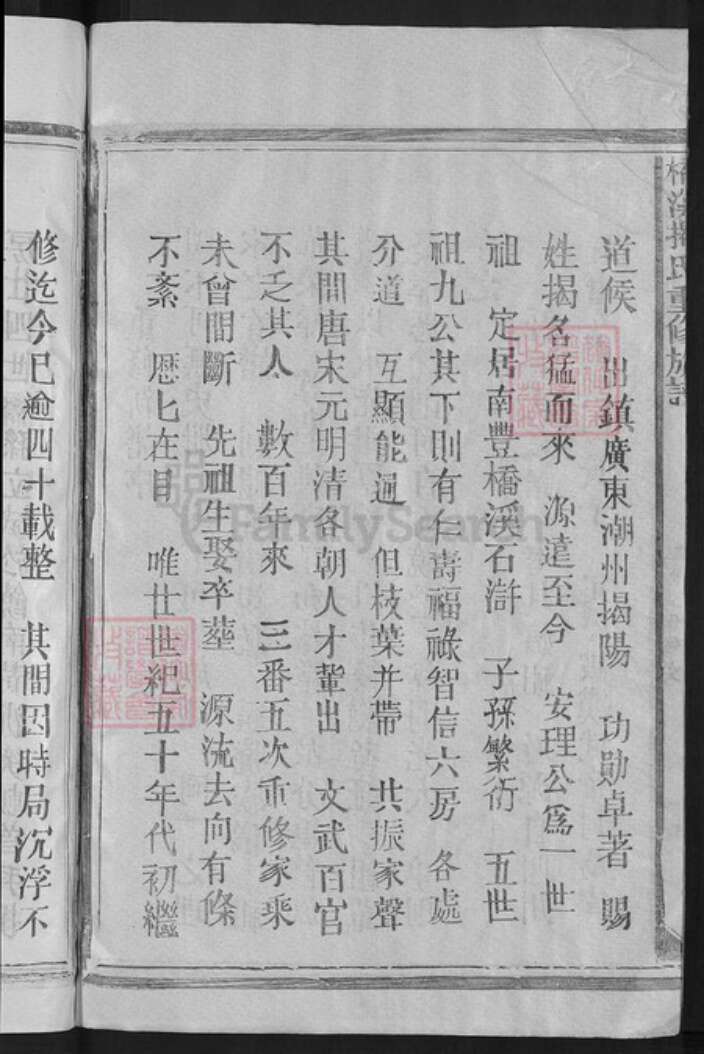 氏重修族譜
道侯 出鎮廣東潮州揭陽 功勛卓著 賜
姓揭名猛而來 源遠至今 安理公爲一世
祖 定居南豐橋溪石滸 子孫繁衍 五世
祖九公其下則有仁壽福祿智信六房 各處
分道 互顯能通 但枝葉并帶 共振家聲
其間唐宋元明清各朝人才輩出 文武百官
不乏其人 數百年來 三番五次重修家乘
未曾間斷 先祖生娶卒葬 源流去向有條
不紊 歷匕在目 唯廿世紀五十年代初繼
修迄今已逾四十載整 其間因時局沉浮不
FamilySearch